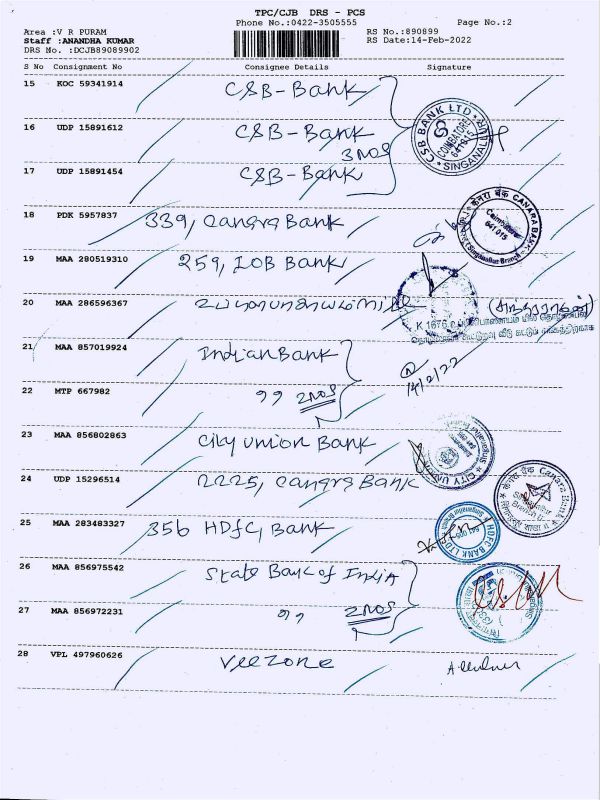 TPC/CJB DRS - PCS
Phone No.:0422-3505555
Page No.:2
Area :V R PURAM
RS No.:890899
Staff :ANANDHA KUMAR
RS Date:14-Feb-2022
DRS No. :DCJB89089902
S No Consignment No Consignee Details Signature
15 KOC 59341914 CSB-Bank
16 UDP 15891612 CSB-Bank
3 NOS
17 UDP 15891454 CSB-Bank
CSB BANK LTD
COIMBATORE
641015
SINGANALLUR
18 PDK 5957837 339, Canara Bank
केनरा बैंक CANARA BANK
Coimbatore
641 015
Singanallur Branch
19 MAA 280519310 259, IOB Bank
20 MAA 286596367
K 1676
21 MAA 857019924 Indian Bank
14/2/22
22 MTP 667982 " 2 NOS
23 MAA 856802863 City Union Bank
CITY UNION
24 UDP 15296514 2225, Canara Bank
केनरा बैंक Canara Bank
25 MAA 283483327 356 HDFC, Bank
HDFC BANK LTD
26 MAA 856975542 State Bank of India
27 MAA 856972231 " 2 NOS
28 VPL 497960626 Veezone